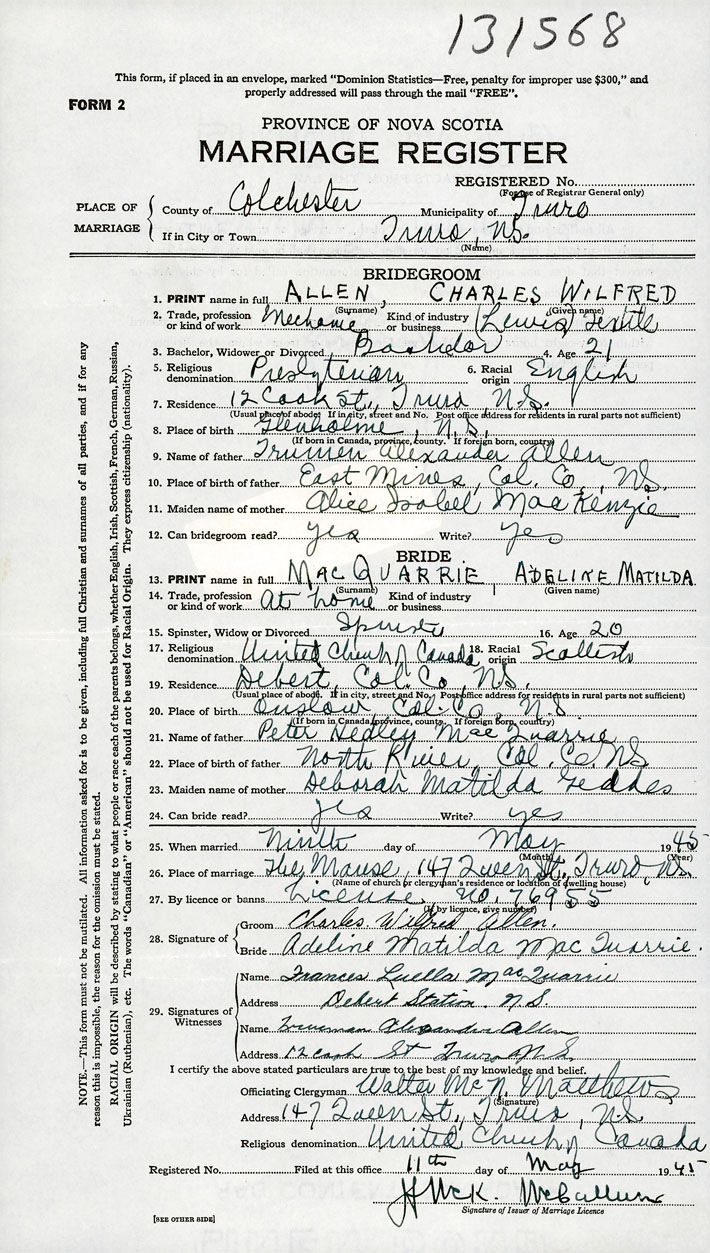 131568
This form, if placed in an envelope, marked "Dominion Statistics—Free, penalty for improper use $300," and
properly addressed will pass through the mail "FREE".
FORM 2
PROVINCE OF NOVA SCOTIA
MARRIAGE REGISTER
REGISTERED No.
(For use of Registrar General only)
PLACE OF MARRIAGE
County of Colchester Municipality of Truro
If in City or Town Truro, N.S.
(Name)
BRIDEGROOM
1. PRINT name in full ALLEN, CHARLES WILFRED
(Surname) (Given name)
2. Trade, profession or kind of work Mechanic Kind of industry or business (Lewis) Textile
3. Bachelor, Widower or Divorced Bachelor 4. Age 21
5. Religious denomination Presbyterian 6. Racial origin English
7. Residence 12 Cook St., Truro N.S.
(Usual place of abode. If in city, street and No. Post office address for residents in rural parts not sufficient)
8. Place of birth Glenholme, N.S.
(If born in Canada, province, county. If foreign born, country)
9. Name of father Trumen Alexander Allen
10. Place of birth of father East Mines, Col. Co., N.S.
11. Maiden name of mother Alice Isobel MacKenzie
12. Can bridegroom read? yes Write? yes
BRIDE
13. PRINT name in full MACQUARRIE ADELINE MATILDA
(Surname) (Given name)
14. Trade, profession or kind of work At home Kind of industry or business
15. Spinster, Widow or Divorced Spinster 16. Age 20
17. Religious denomination United Church of Canada 18. Racial origin Scottish
19. Residence Debert, Col. Co., N.S.
(Usual place of abode. If in city, street and No. Post office address for residents in rural parts not sufficient)
20. Place of birth Onslow, Col. Co., N.S
(If born in Canada, province, county. If foreign born, country)
21. Name of father Peter Hedley MacQuarrie
22. Place of birth of father North River, Col. Co. N.S
23. Maiden name of mother Deborah Matilda Geddes
24. Can bride read? yes Write? yes
25. When married Ninth day of May 1945
(Month) (Year)
26. Place of marriage The Manse, 147 Queen St., Truro, N.S.
(Name of church or clergyman's residence or location of dwelling house)
27. By licence or banns License no. 76955
(If by licence, give number)
28. Signature of
Groom Charles Wilfred Allen.
Bride Adeline Matilda MacQuarrie.
29. Signatures of Witnesses
Name Frances Luella MacQuarrie
Address Debert Station. N.S.
Name Trueman Alexander Allen
Address 12 Cook St Truro N.S.
I certify the above stated particulars are true to the best of my knowledge and belief.
Officiating Clergyman Walter McN. Matthews
(Signature)
Address 147 Queen St., Truro, N.S.
Religious denomination United Church of Canada
Registered No. Filed at this office 11th day of May 1945
H McK. McCallum
Signature of Issuer of Marriage Licence
[SEE OTHER SIDE]
NOTE.—This form must not be mutilated. All information asked for is to be given, including full Christian and surnames of all parties, and if for any
reason this is impossible, the reason for the omission must be stated.
RACIAL ORIGIN will be described by stating to what people or race each of the parents belongs, whether English, Irish, Scottish, French, German, Russian,
Ukrainian (Ruthenian), etc. The words "Canadian" or "American" should not be used for Racial Origin. They express citizenship (nationality).